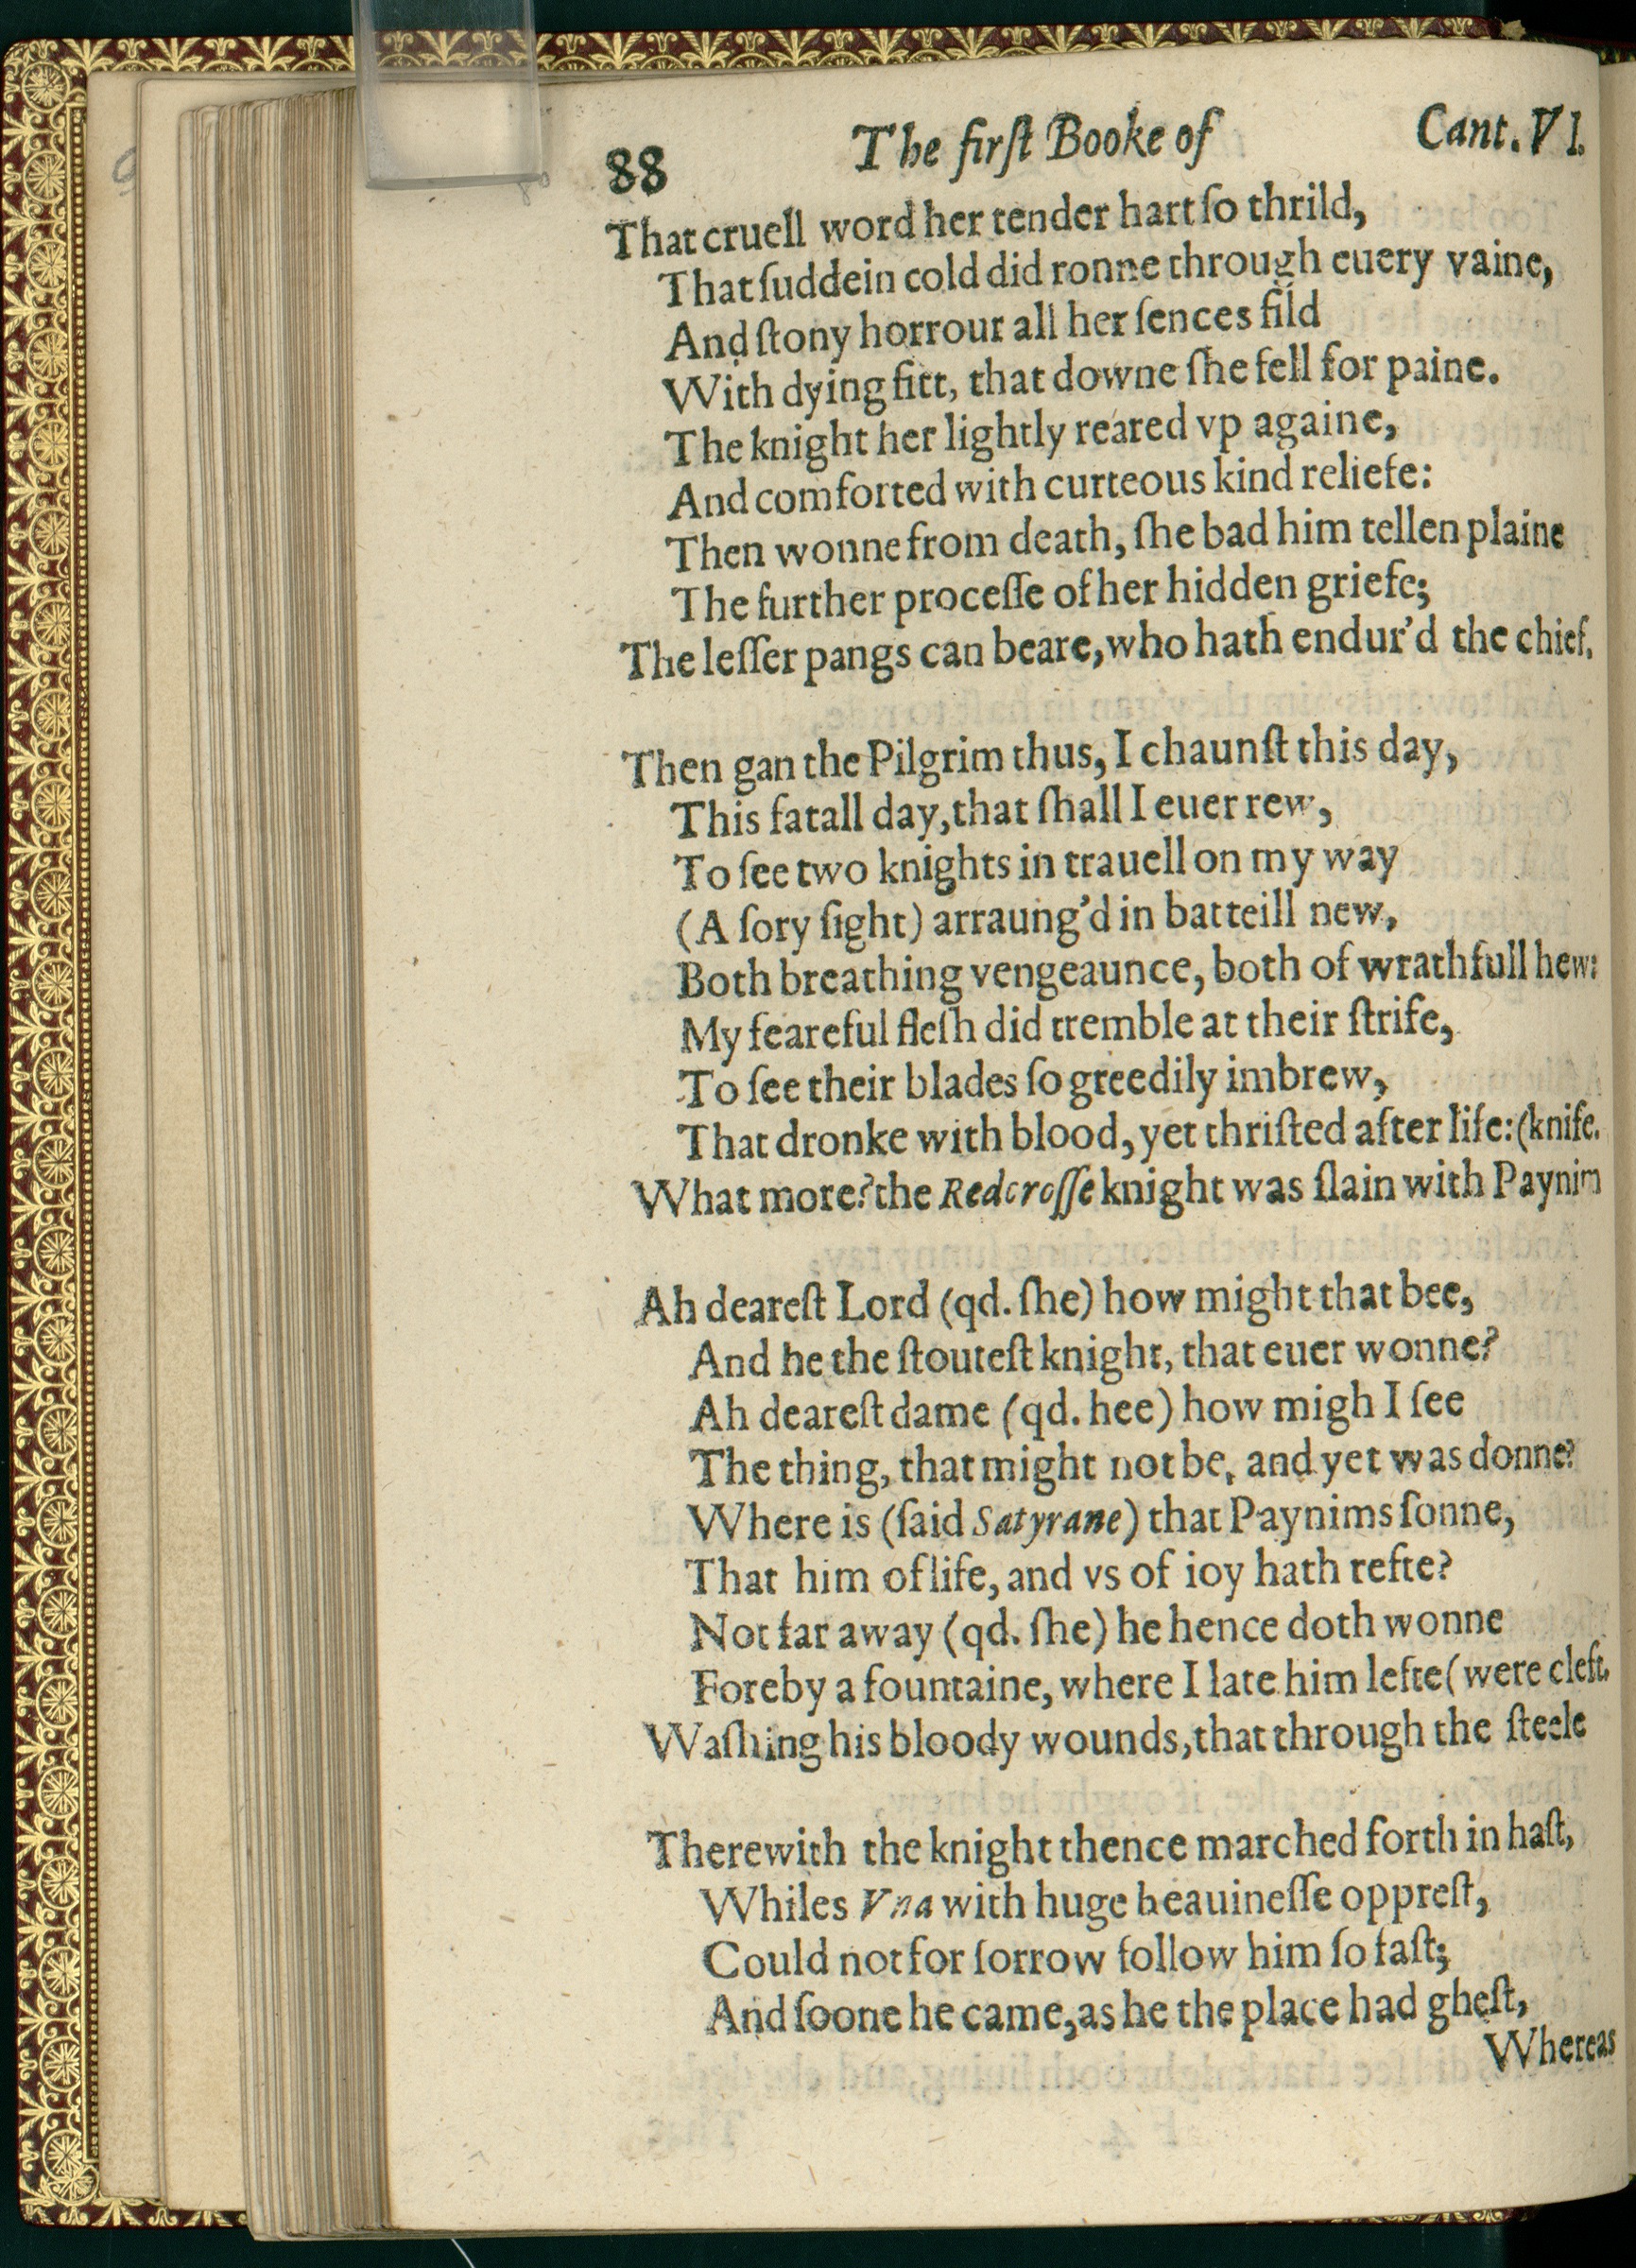 88 The firſt Booke of Cant. VI.
That cruell word her tender hart ſo thrild,
That ſuddein cold did ronne through euery vaine,
And ſtony horrour all her ſences fild
With dying fitt, that downe ſhe fell for paine.
The knight her lightly reared vp againe,
And comforted with curteous kind reliefe:
Then wonne from death, ſhe bad him tellen plaine
The further proceſſe of her hidden griefe;
The leſſer pangs can beare, who hath endur'd the chief.
Then gan the Pilgrim thus, I chaunſt this day,
This fatall day, that ſhall I euer rew,
To ſee two knights in trauell on my way
(A ſory ſight) arraung'd in batteill new,
Both breathing vengeaunce, both of wrathfull hew:
My feareful fleſh did tremble at their ſtrife,
To ſee their blades ſo greedily imbrew,
That dronke with blood, yet thriſted after life: (knife.
What more? the Redcroſſe knight was ſlain with Paynim
Ah deareſt Lord (qd. ſhe) how might that bee,
And he the ſtouteſt knight, that euer wonne?
Ah deareſt dame (qd. hee) how migh I ſee
The thing, that might not be, and yet was donne?
Where is (ſaid Satyrane) that Paynims ſonne,
That him of life, and vs of ioy hath refte?
Not far away (qd. ſhe) he hence doth wonne
Foreby a fountaine, where I late him lefte (were cleft.
Waſhing his bloody wounds, that through the ſteele
Therewith the knight thence marched forth in haſt,
Whiles Vna with huge heauineſſe oppreſt,
Could not for ſorrow follow him ſo faſt;
And ſoone he came, as he the place had gheſt,
Whereas